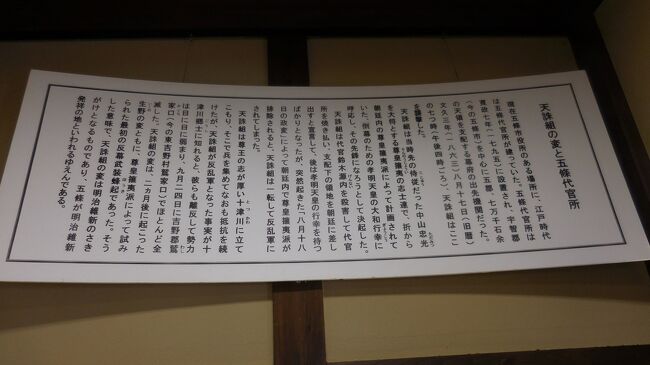 天誅組の変と五條代官所
現在五條市役所のある場所に、江戸時代
は五條代官所が建っていた。五條代官所は
寛政七年(一七九五)に設置され、宇智郡
(今の五條市)を中心に五郡、七万千石余
の天領を支配する幕府の出先機関だった。
文久三年(一八六三)八月十七日(旧暦)
の七つ時(午後四時ごろ)、天誅組はここ
を襲撃した。
天誅組は当時先の侍従だった中山忠光
を大将とする尊皇攘夷の志士達で、折から
朝廷内の尊皇攘夷派によって計画されて
いた、倒幕のための孝明天皇の大和行幸に
呼応し、その先鋒になろうとして決起した。
天誅組は代官鈴木源内を殺害して代官
所を焼き払い、支配下の領地を朝廷に差し
出すと宣言して、後は孝明天皇の行幸を待つ
ばかりとなったが、突然起きた「八月十八
日の政変」によって朝廷内で尊皇攘夷派が
排除されると、天誅組は一転して反乱軍に
されてしまった。
天誅組は尊王の志が厚い十津川に立て
こもり、そこで兵を集めてなおも抵抗を続
けたが、天誅組が反乱軍となった事実が十
津川郷士に知れると、彼らも離反して勢力
は日に日に弱まり、九月二四日に吉野郡鷲
家口(今の東吉野村鷲家口)でほとんど全
滅した。天誅組の変は、二ヵ月後に起こった
生野の変とともに、尊皇攘夷派によって試み
られた最初の反幕武装蜂起であった。そう
した意味で、天誅組の変は明治維新のさき
がけとなるものであり、五條が明治維新
発祥の地といわれるゆえんである。